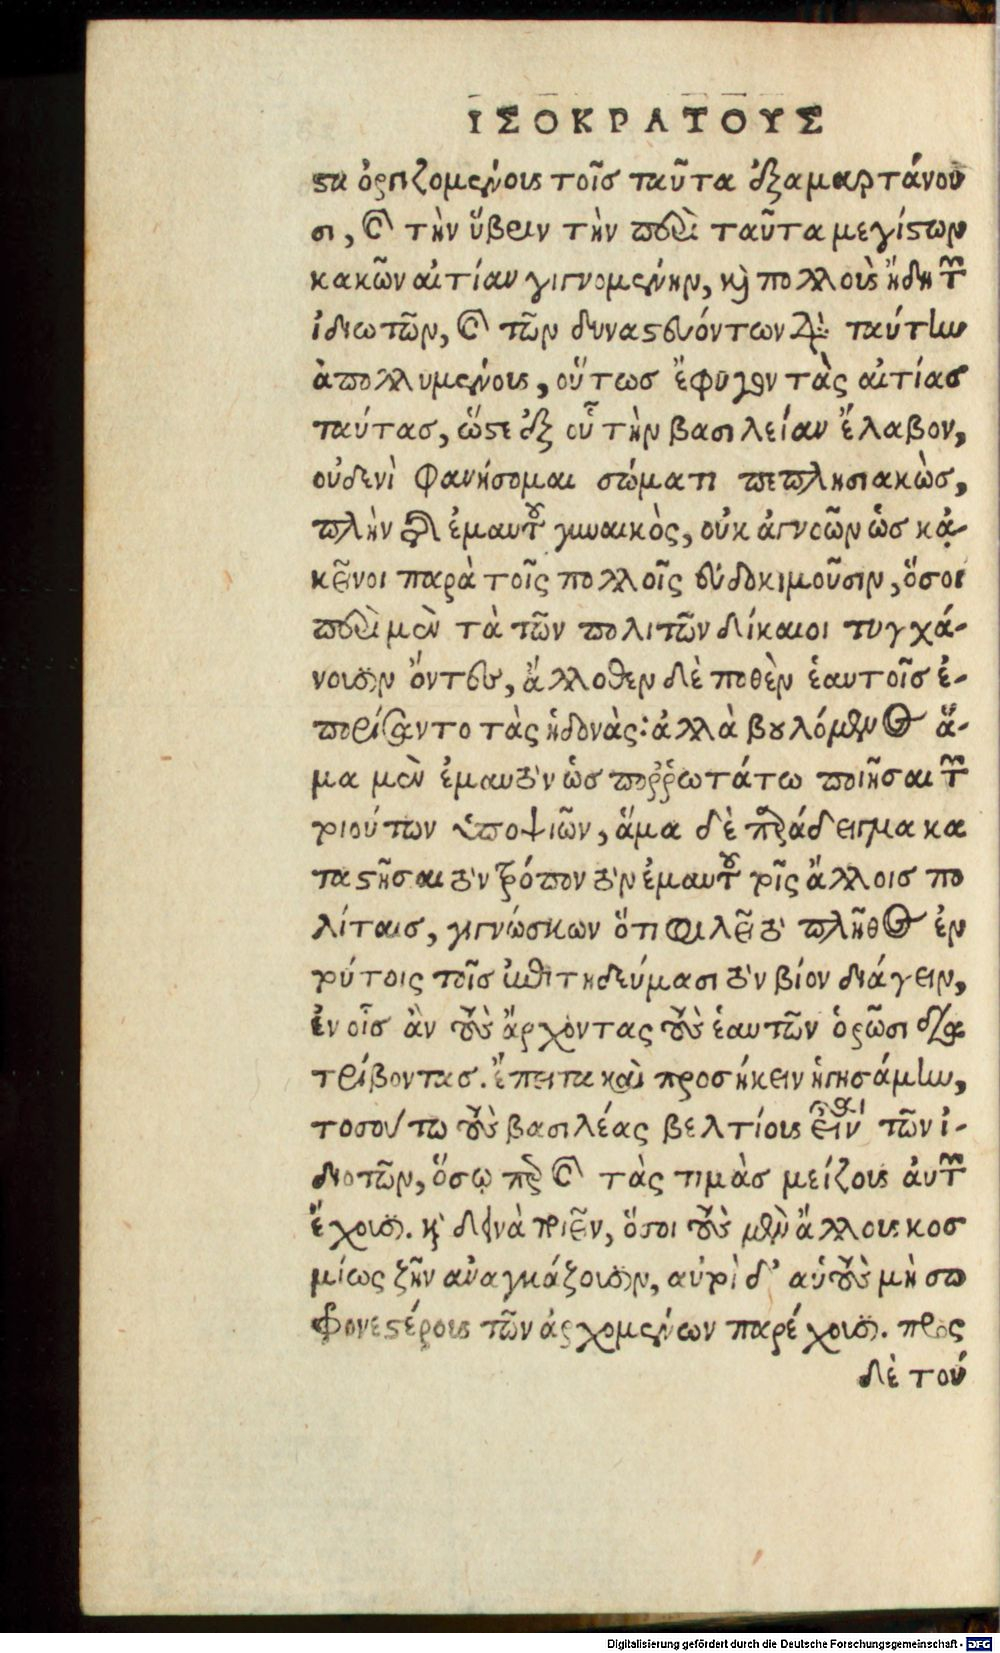 ΙΣΟΚΡΑΤΟΥΣ
στα ὀργιζομένους τοῖς ταῦτα ἐξαμαρτάνου
σι, καὶ τὴν ὕβριν τὴν περὶ ταῦτα μεγίστων
κακῶν αἰτίαν γιγνομένην, καὶ πολλοὺς ἤδη τῶν
ἰδιωτῶν, καὶ τῶν δυναστευόντων διὰ ταύτην
ἀπολλυμένους, οὕτως ἔφυγον τὰς αἰτίας
ταύτας, ὥστε ἐξ οὗ τὴν βασιλείαν ἔλαβον,
οὐδενὶ φανήσομαι σώματι πεπλησιακὼς,
πλὴν τῆς ἐμαυτοῦ γυναικὸς, οὐκ ἀγνοῶν ὡς κἀ-
κεῖνοι παρὰ τοῖς πολλοῖς εὐδοκιμοῦσιν, ὅσοι
περὶ μὲν τὰ τῶν πολιτῶν δίκαιοι τυγχά-
νουσιν ὄντες, ἄλλοθεν δὲ ποθὲν ἑαυτοῖς ἐ-
πορίσαντο τὰς ἡδονὰς: ἀλλὰ βουλόμενος ἅ-
μα μὲν ἐμαυτὸν ὡς πορρωτάτω ποιῆσαι τῶν
τοιούτων ὑποψιῶν, ἅμα δὲ παράδειγμα κα
ταστῆσαι τὸν τρόπον τὸν ἐμαυτοῦ τοῖς ἄλλοις πο
λίταις, γιγνώσκων ὅτι φιλεῖ τὸ πλῆθος ἐν
τούτοις τοῖς ἐπιτηδεύμασι τὸν βίον διάγειν,
ἐν οἷς ἂν τοὺς ἄρχοντας τοὺς ἑαυτῶν ὁρῶσι δια
τρίβοντας. ἔπειτα καὶ προσήκειν ἡγησάμην,
τοσούτω τοὺς βασιλέας βελτίους εἶναι τῶν ἰ-
διοτῶν, ὅσῳ περ καὶ τὰς τιμὰς μείζους αὐτῶν
ἔχουσι. καὶ δεινὰ ποιεῖν, ὅσοι τοὺς μὲν ἄλλους κοσ
μίως ζῆν ἀναγκάζουσιν, αὐτοὶ δ' αὑτοὺς μὴ σω
φρονεστέρους τῶν ἀρχομένων παρέχουσι. πρὸς
δὲ τού
Digitalisierung gefördert durch die Deutsche Forschungsgemeinschaft - DFG